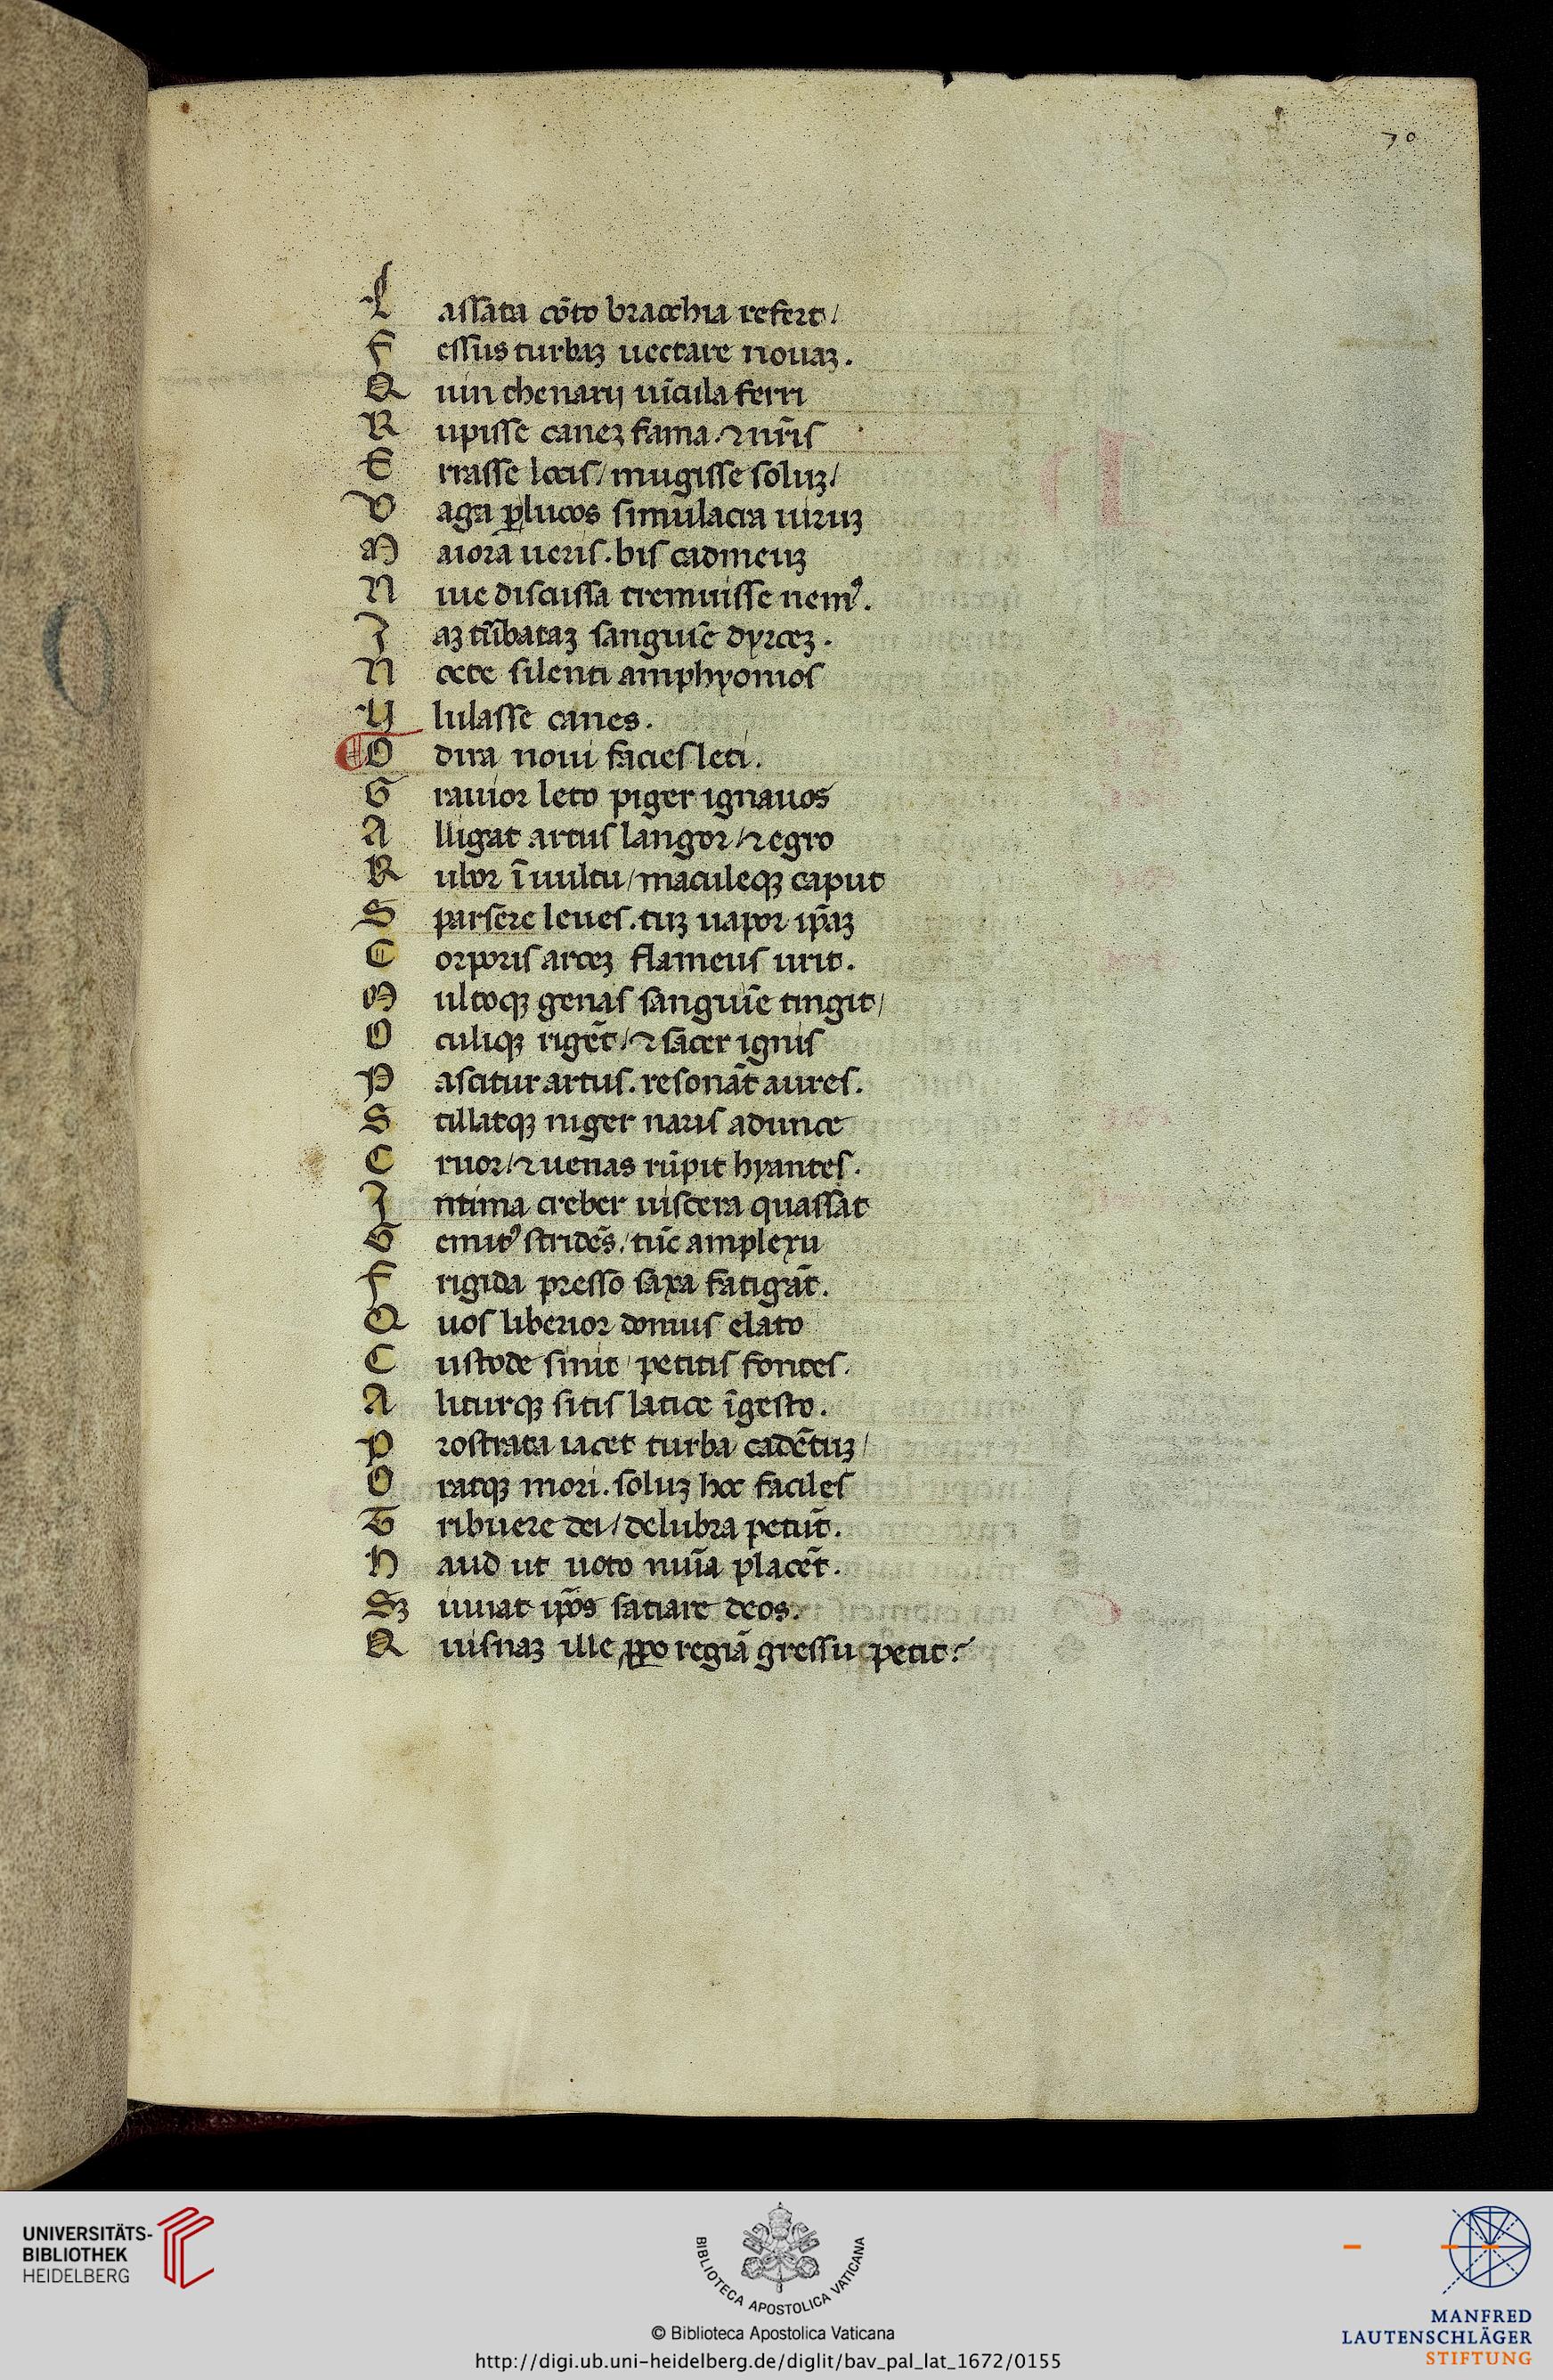 70
Lassata cōto bracchia refert/
Fessus turbaꝫ uectare nouaꝫ.
Quin thenarij uīcula ferri
Rupisse caneꝫ fama. ⁊ nr̄is
Errasse locis/ mugisse soluꝫ/
Vaga ꝑ lucos simulacra uiruꝫ
Maiora ueris. bis cadmeuꝫ
Niue discussa tremuisse nemꝰ.
Iaꝫ tūbataꝫ sanguīe dyrceꝫ.
Nocte silenti amphyonios
Vlulasse canes.
O dira noui facies leti.
Grauior leto piger ignauos
Alligat artus langor/ ⁊ egro
Rubor ī uultu/ maculeqꝫ caput
Sparsere leues. tuꝫ uapor ip̄aꝫ
Corporis arceꝫ flameus urit.
Multoqꝫ genas sanguīe tingit/
Oculiqꝫ rigēt/ ⁊ sacer ignis
Pascitur artus. resonāt aures.
Stillatqꝫ niger naris adunce
Cruor/ ⁊ uenas rūpit hyantes.
Intima creber uiscera quassat
Gemitꝰ stridēs/ tūc amplexu
Frigida presso saxa fatigāt.
Quos liberior domus elato
Custode sinit/ petitis fontes.
Aliturqꝫ sitis latice īgesto.
Prostrata iacet turba cadētuꝫ/
Oratqꝫ mori. soluꝫ hoc faciles
Tribuere dei/ delubra petūt.
Haud ut uoto nuīa placēt.
Sꝫ iuuat ip̄os satiare deos.
Quisnaꝫ ille ꝓpo regiā gressu petit?
UNIVERSITÄTS-
BIBLIOTHEK
HEIDELBERG
BIBLIOTECA APOSTOLICA VATICANA
© Biblioteca Apostolica Vaticana
http://digi.ub.uni-heidelberg.de/diglit/bav_pal_lat_1672/0155
MANFRED
LAUTENSCHLÄGER
STIFTUNG